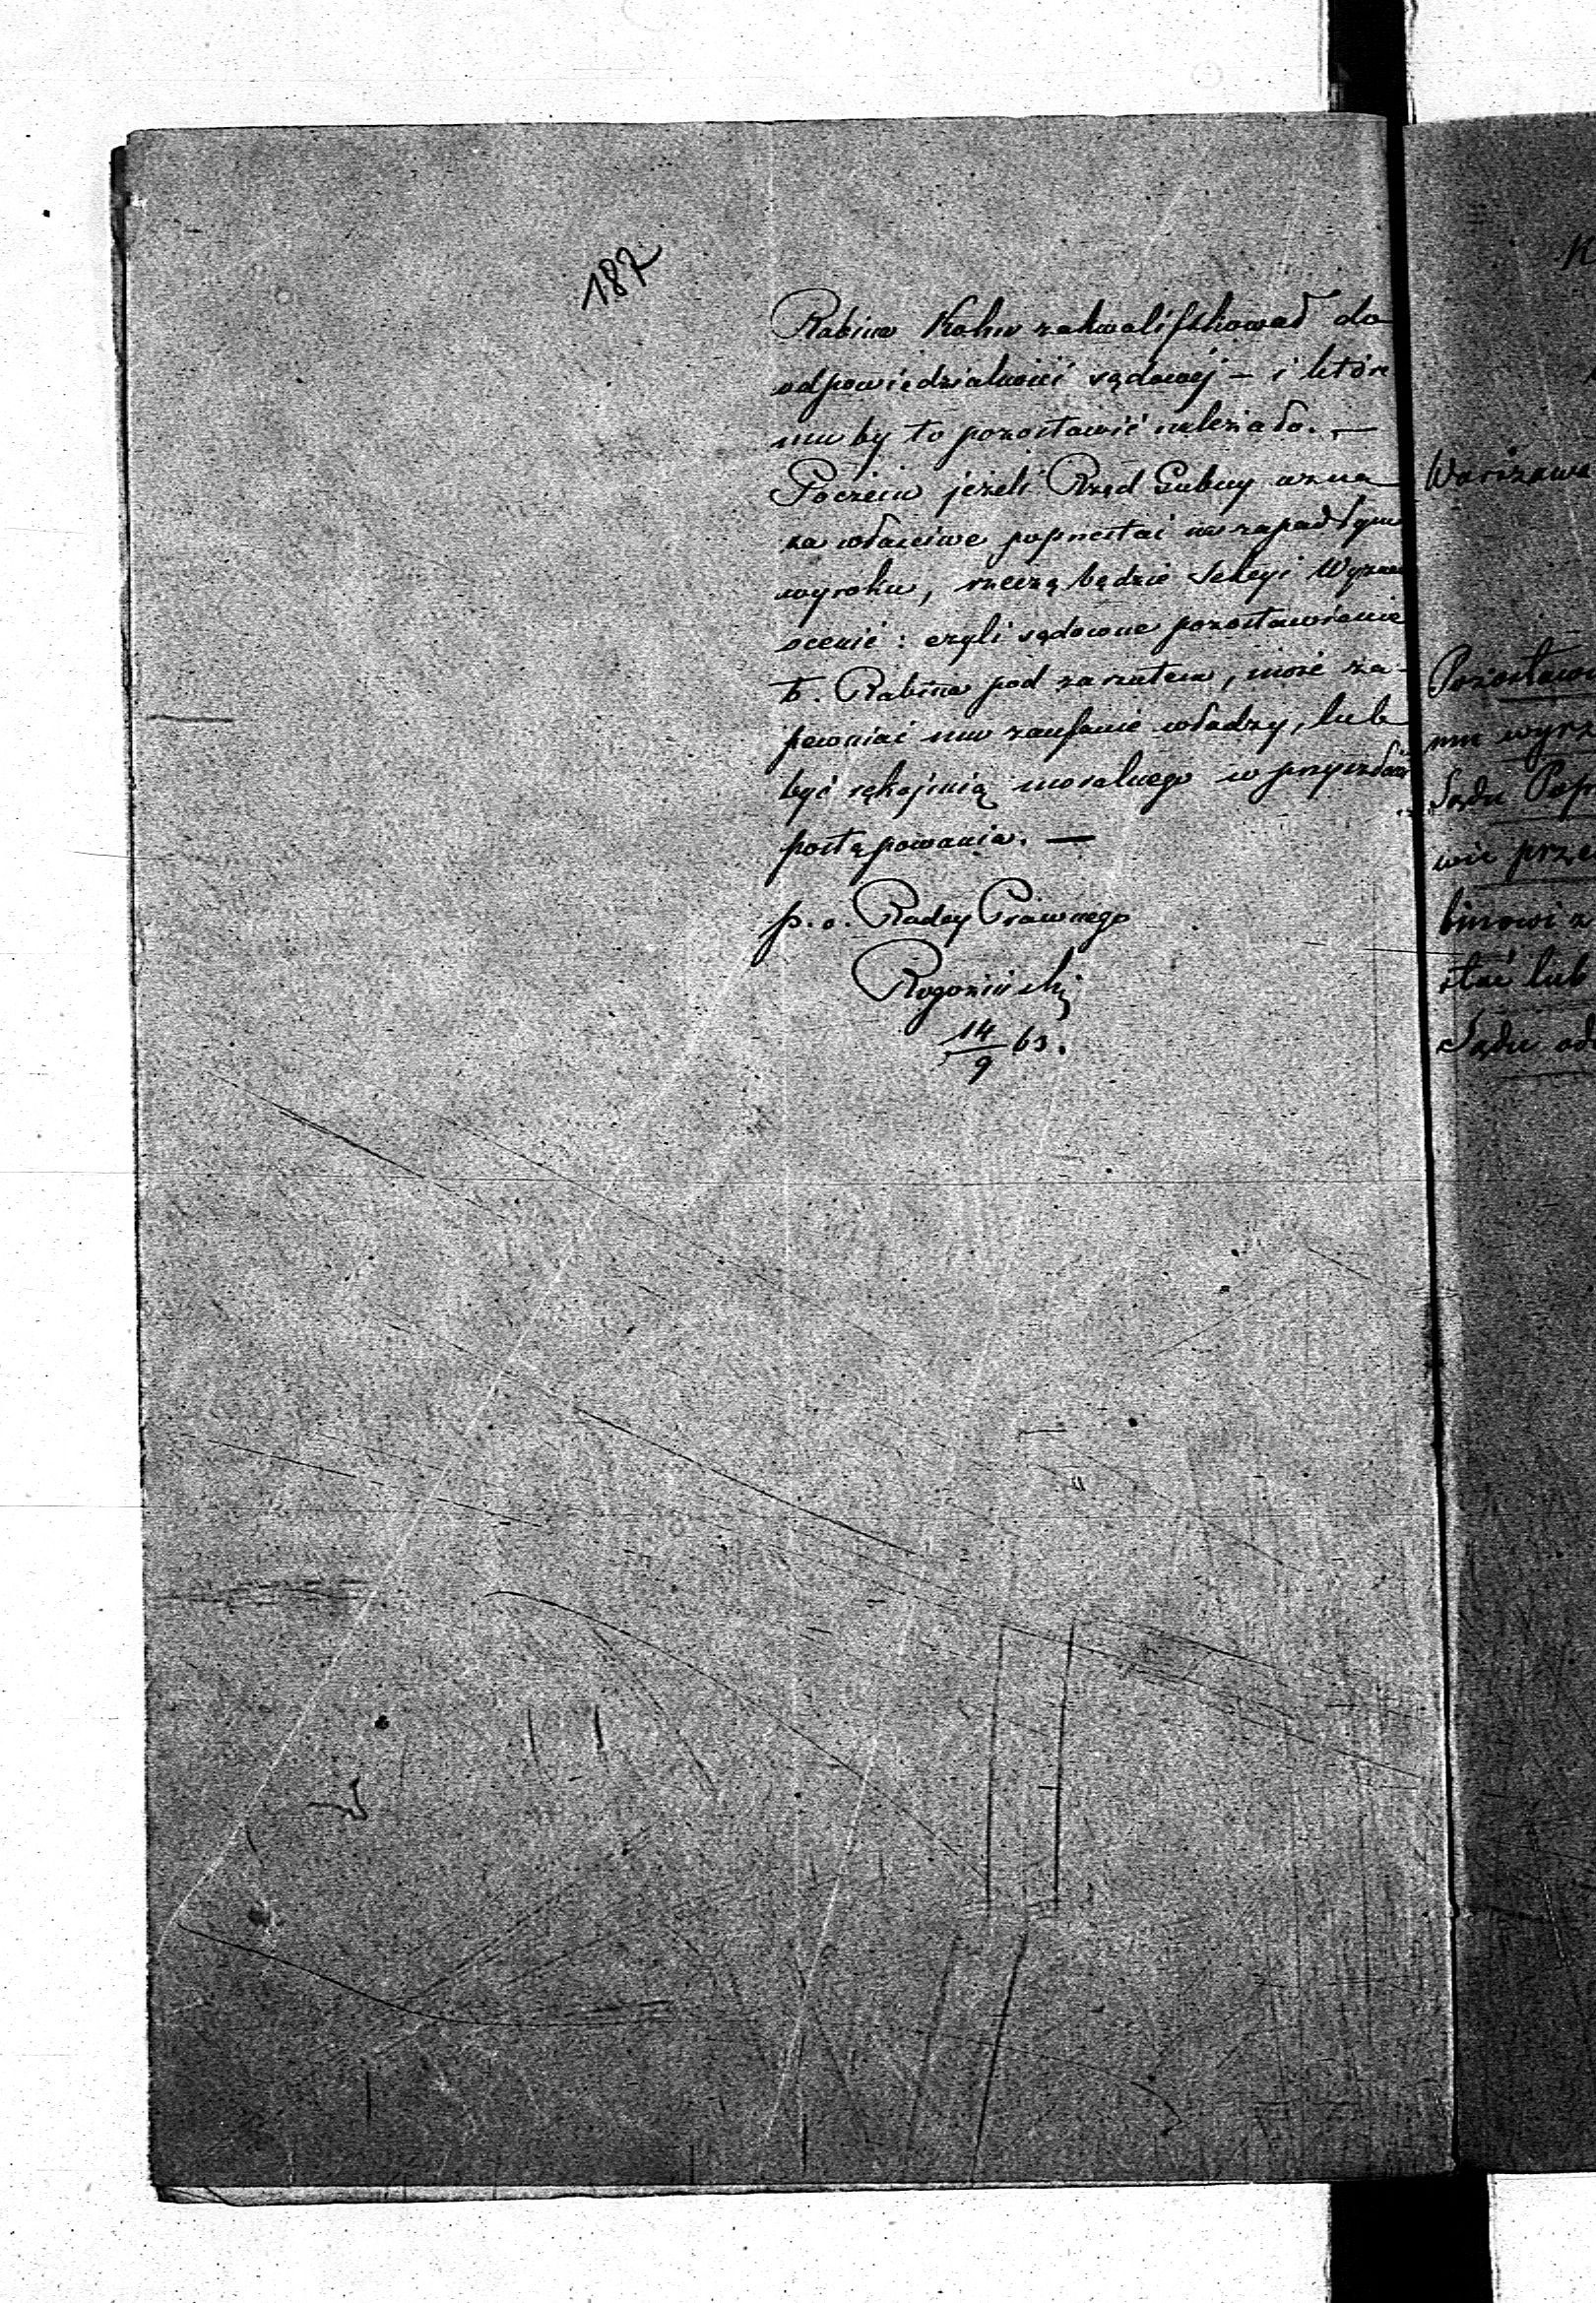 187
Rabina Kohn zakwalifikował do
odpowiedzialności sądowéj – i które
mu by to pozostawić należało. —
Poczém jeżeli Rząd Gubny uzna
za właściwe poprzestać na zapadłym
wyroku, rzeczą będzie Sekcyi Wyznań
ocenić: czyli sądowne pozostawienie
t. Rabina pod zarzutem, może za-
pewniać mu zaufanie władzy, lub
być rękojmią moralnego w przyszłości
postępowania. —
p. o. Radcy Prawnego
Rogoziński
14/9 63.
Warszawa
Pozostawi
mu wyrz
Sądu Pop
wie prze
binowi z
stać lub
Sądu od